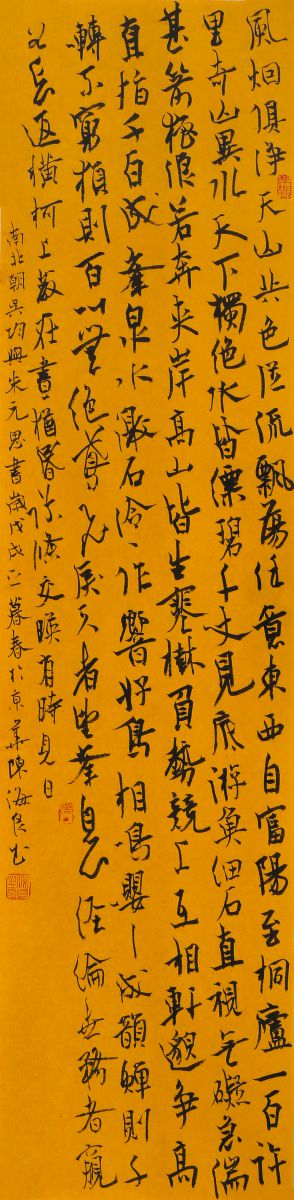 風烟俱淨天山共色從流飄蕩任意東西自富陽至桐廬一百許
里奇山異水天下獨絕水皆縹碧千丈見底游魚細石直視無礙急湍
甚箭猛浪若奔夾岸高山皆生寒樹負勢競上互相軒邈爭高
直指千百成峯泉水激石泠、作響好鳥相鳴嚶、成韻蟬則千
轉不窮猿則百叫無絕鳶飛戾天者望峯息心經綸世務者窺
谷忘返橫柯上蔽在晝猶昏疎條交暎有時見日
南北朝吳均與朱元思書歲戊戌之暮春於京華陳海良書